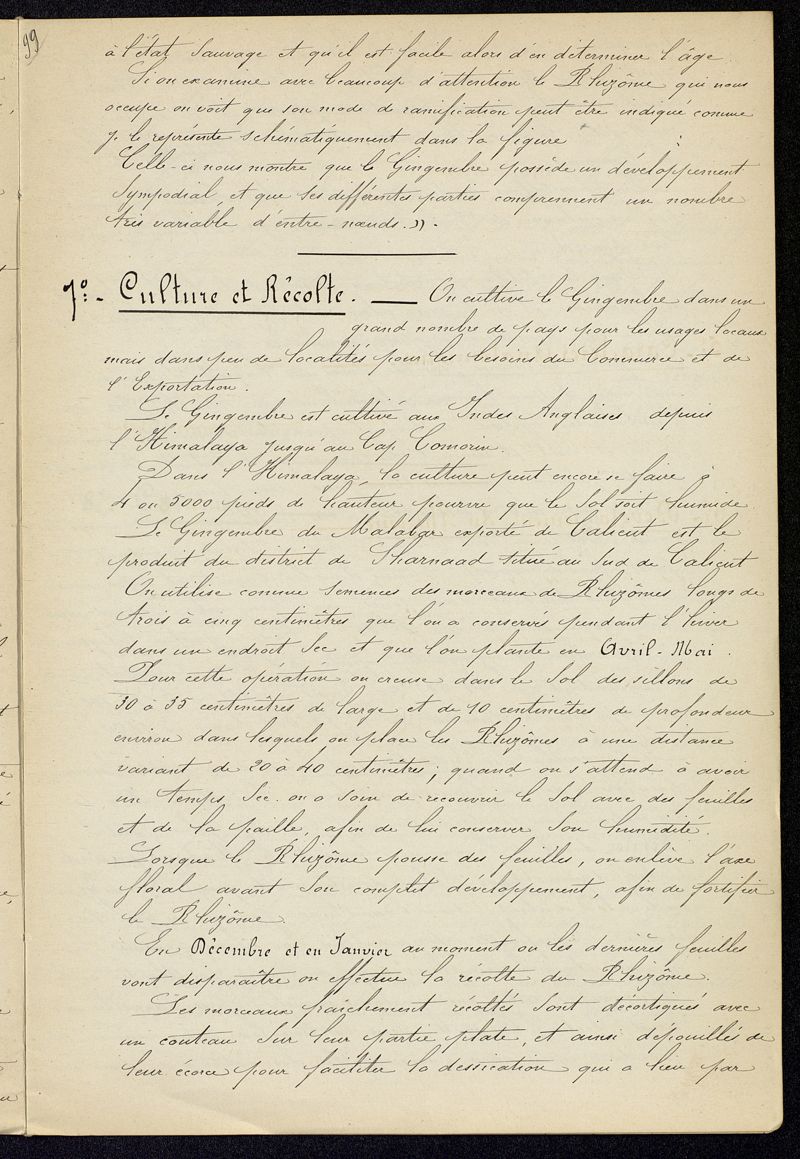 99
à l'état sauvage et qu'il est facile alors d'en déterminer l'âge.
Si on examine avec beaucoup d'attention le Rhizôme qui nous
occupe on voit que son mode de ramification peut être indiqué comme
je le représente schématiquement dans la figure :
Celle-ci nous montre que le Gingembre possède un développement
sympodial, et que ses différentes parties comprennent un nombre
très variable d'entre-nœuds. )) -
7º- Culture et Récolte. — On cultive le Gingembre dans un
grand nombre de pays pour les usages locaux
mais dans peu de localités pour les besoins du Commerce et de
l'Exportation.
Le Gingembre est cultivé aux Indes Anglaises depuis
l'Himalaya jusqu'au Cap Comorin.
Dans l'Himalaya, la culture peut encore se faire à
4 ou 5000 pieds de hauteur pourvu que le sol soit humide
Le Gingembre du Malabar exporté de Calicut est le
produit du district de Sharnaad situé au Sud de Calicut
On utilise comme semences des morceaux de Rhizômes longs de
trois à cinq centimètres que l'on a conservés pendant l'hiver
dans un endroit sec et que l'on plante en Avril-Mai.
Pour cette opération on creuse dans le Sol des sillons de
30 à 35 centimètres de large et de 10 centimètres de profondeur
environ dans lesquels on place les Rhizômes à une distance
variant de 20 à 40 centimètres ; quand on s'attend à avoir
un temps Sec. on a soin de recouvrir le Sol avec des feuilles
et de la paille, afin de lui conserver son humidité.
Lorsque le Rhizôme pousse des feuilles, on enlève l'axe
floral avant son complet développement, afin de fortifier
le Rhizôme.
En Décembre et en Janvier au moment ou les dernières feuilles
vont disparaître on effectue la récolte du Rhizôme.
Les morceaux fraîchement récoltés sont décortiqués avec
un couteau sur leur partie plate, et ainsi dépouillés de
leur écorce pour faciliter la dessication qui a lieu par